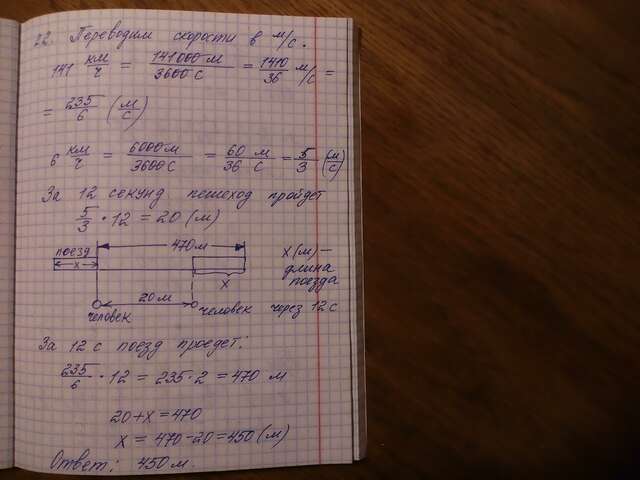 22. Переводим скорости в м/с.
141 км/ч = 141000 м/3600 с = 1410/36 м/с =
= 235/6 (м/с)
6 км/ч = 6000 м/3600 с = 60 м/36 с = 5/3 (м/с)
За 12 секунд пешеход пройдет
5/3 · 12 = 20 (м)
470 м
поезд
x
x
x (м) —
длина
поезда
20 м
человек
человек через 12 с
За 12 с поезд проедет:
235/6 · 12 = 235 · 2 = 470 м
20 + x = 470
x = 470 - 20 = 450 (м)
Ответ: 450 м.